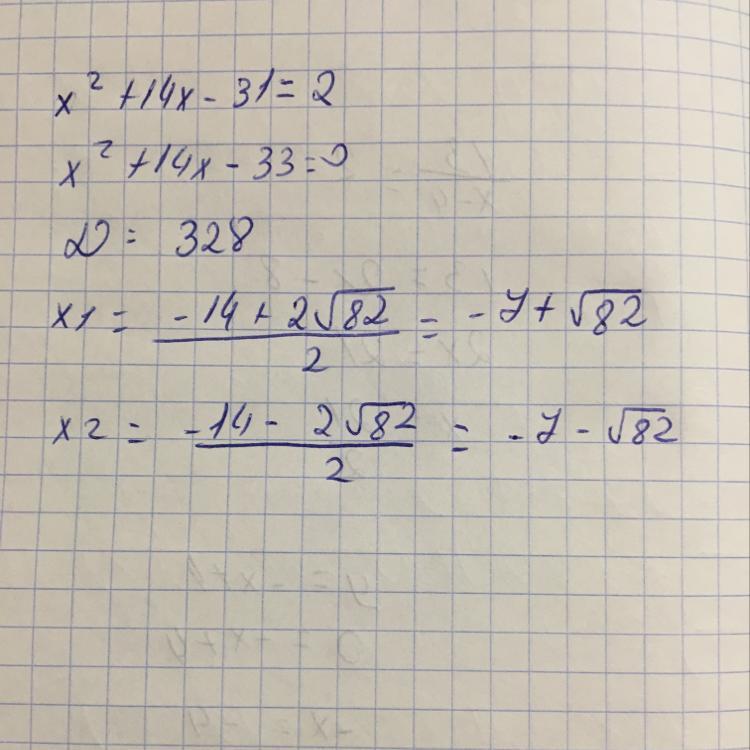 x² + 14x - 31 = 2
x² + 14x - 33 = 0
D = 328
x1 = (-14 + 2√82)/2 = -7 + √82
x2 = (-14 - 2√82)/2 = -7 - √82